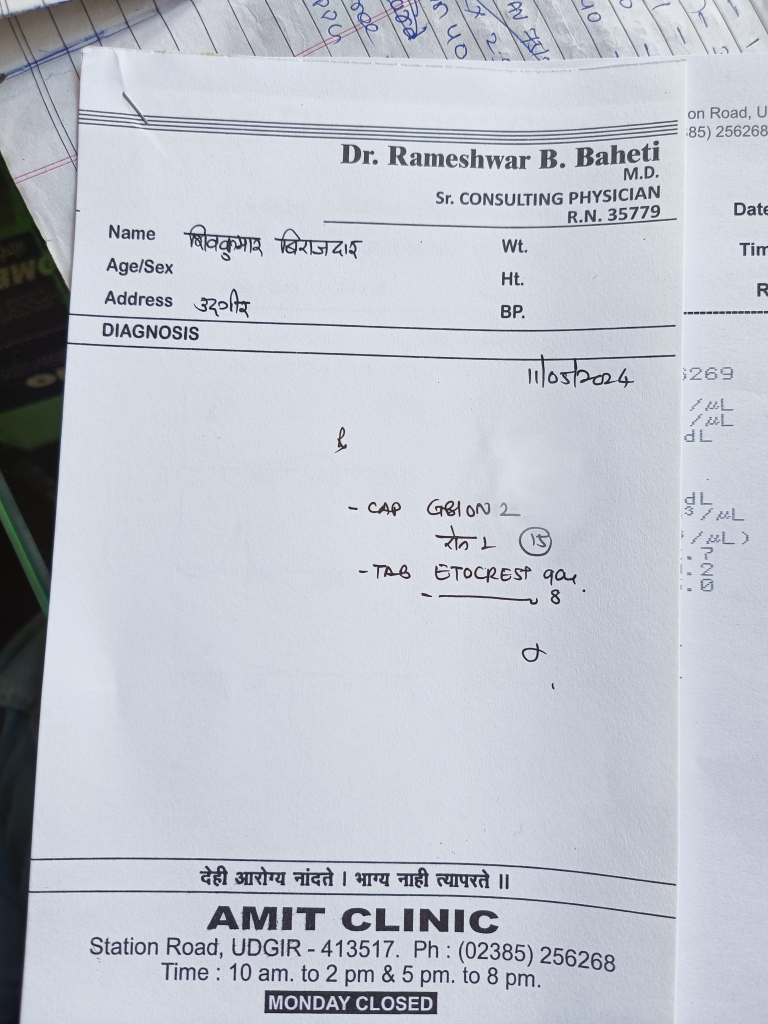 Dr. Rameshwar B. Baheti
M.D.
Sr. CONSULTING PHYSICIAN
R.N. 35779
Name शिवकुमार बिराजदार Wt.
Age/Sex Ht.
Address उदगीर BP.
DIAGNOSIS
11/05/2024
- CAP
रोज 1 15
- TAB ETOCREST 90
8
देही आरोग्य नांदते । भाग्य नाही त्यापरते ॥
AMIT CLINIC
Station Road, UDGIR - 413517. Ph : (02385) 256268
Time : 10 am. to 2 pm & 5 pm. to 8 pm.
MONDAY CLOSED
on Road, U
85) 256268
Date
Tim
R
6269
/µL
/µL
dL
dL
³/µL
/µL)
.7
.2
.0